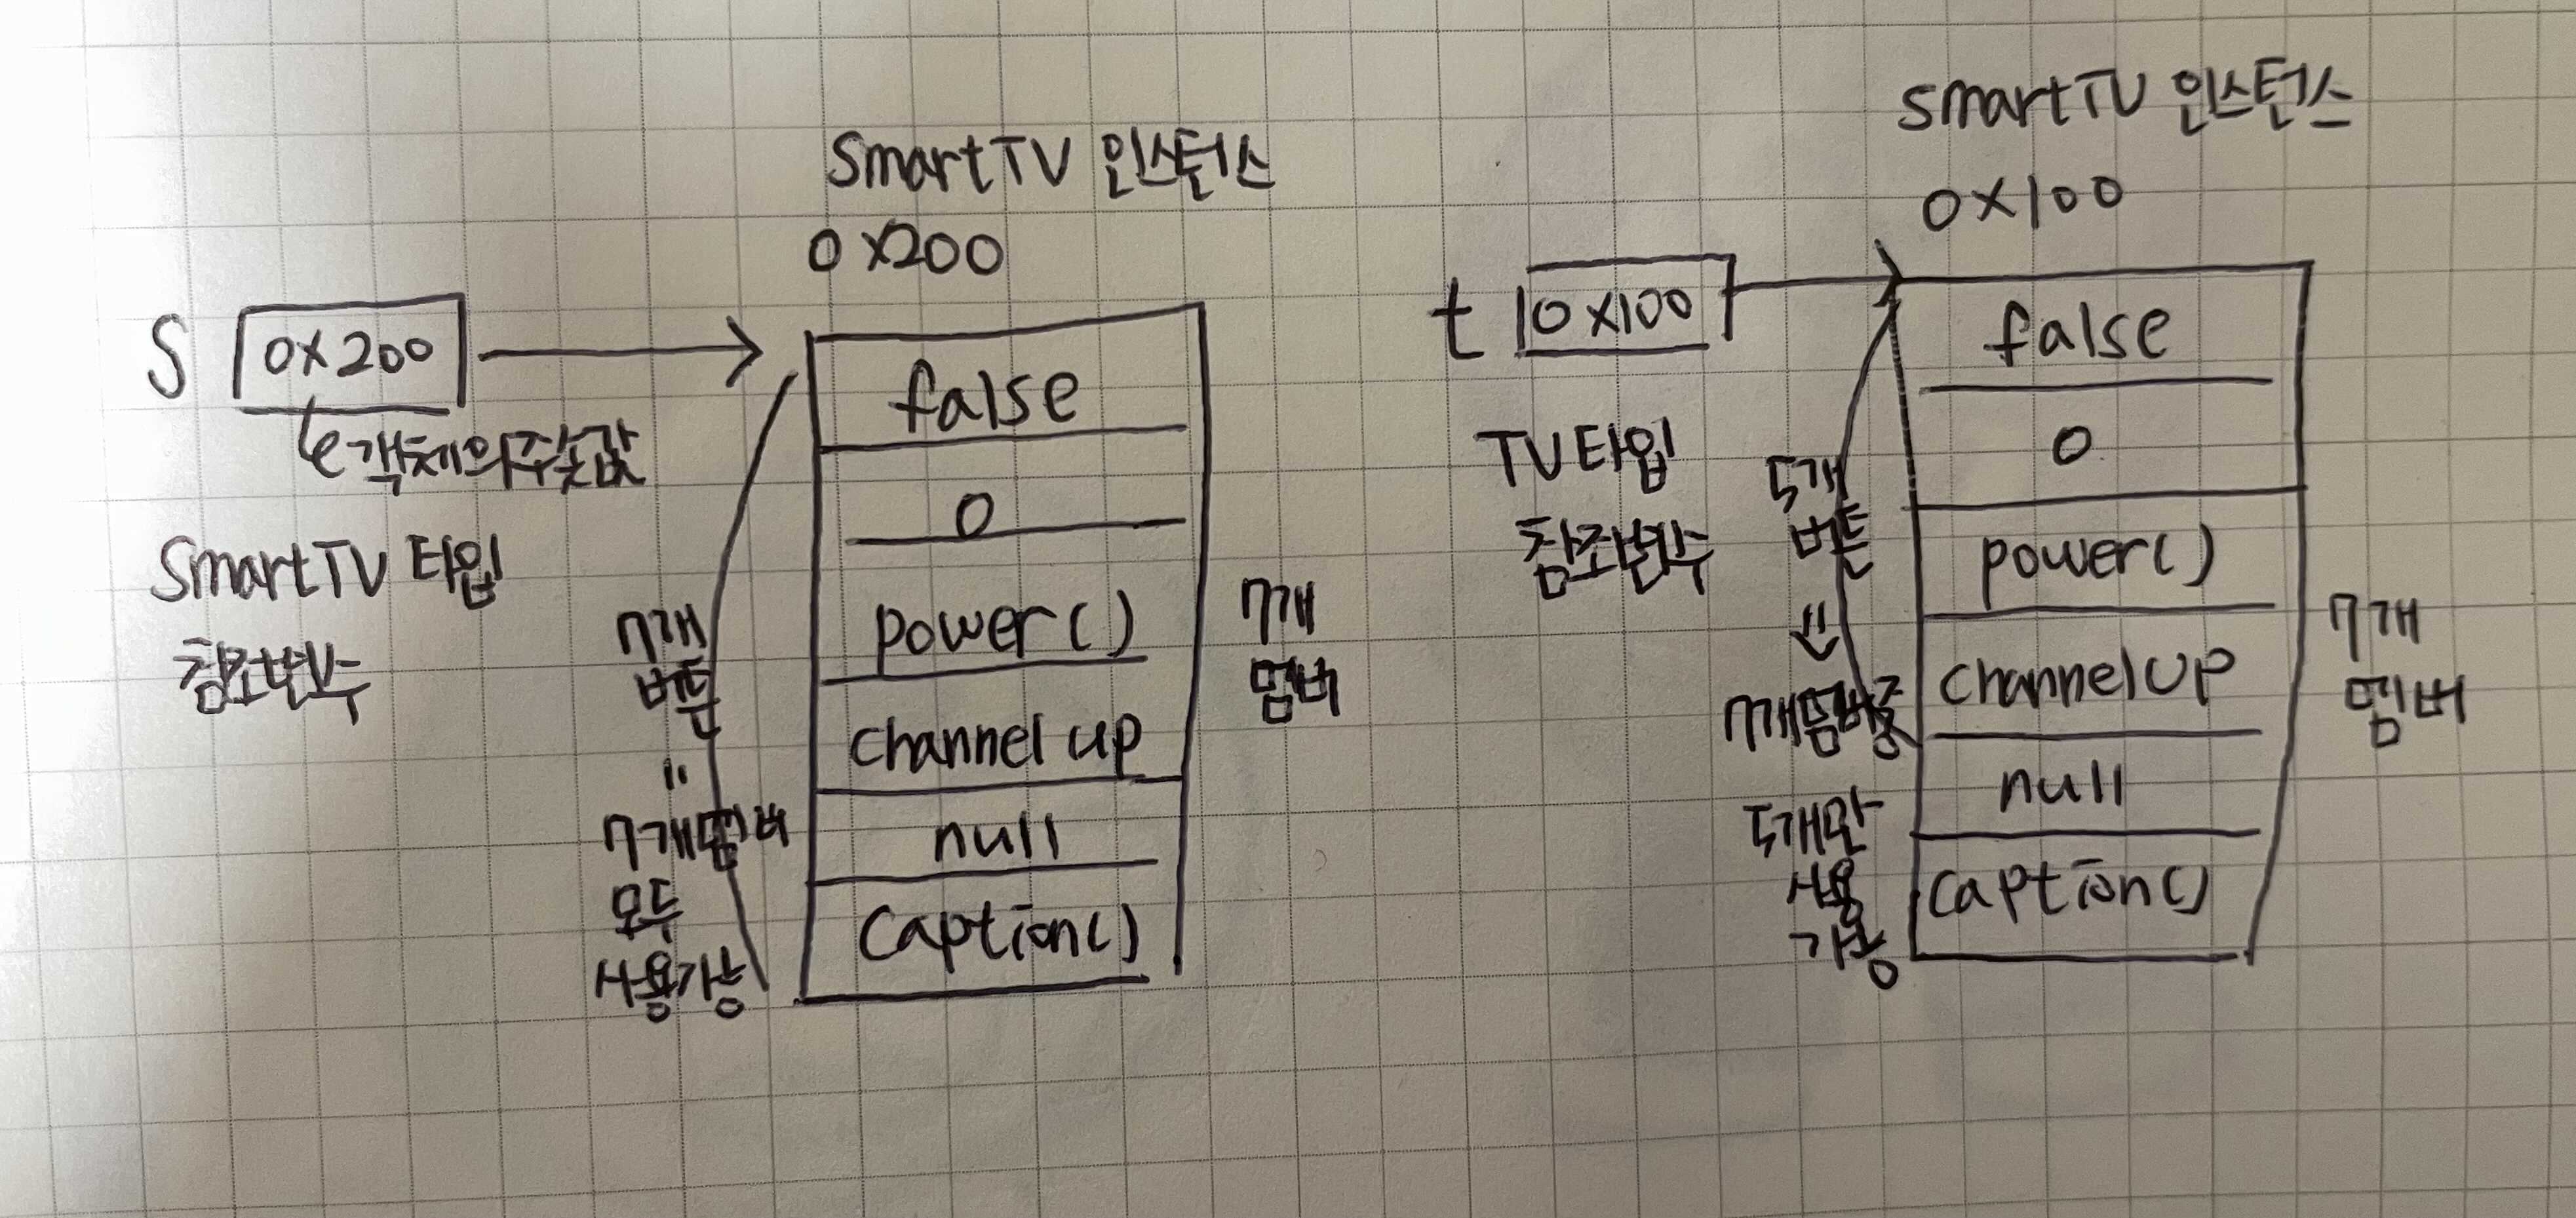 SmartTV 인스턴스
0x200
S 0x200
객체의주솟값
SmartTV 타입
참조변수
7개
버튼
=
7개멤버
모두
사용가능
false
0
power()
channel up
null
caption()
7개
멤버
smartTV 인스턴스
0x100
t 0x100
TV타입
참조변수
5개
버튼
⇓
7개멤버중
5개만
사용
가능
false
0
power()
channel UP
null
caption()
7개
멤버